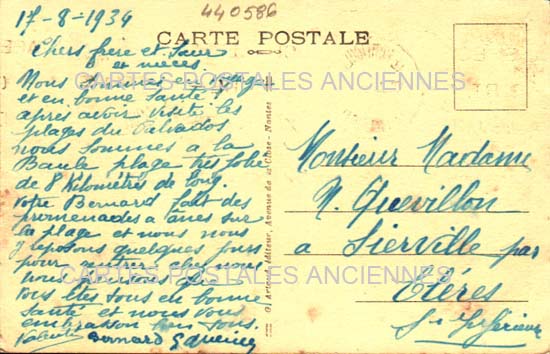 17-8-1934
440586
CARTE POSTALE
Chers frère et Sœur
et nièces
Nous sommes en
et en bonne santé
après avoir visité les
plages du Calvados
nous sommes a la
Baule plage très jolie
de 8 kilomètres de long.
votre Bernard fait des
promenades a ânes sur
la plage et nous nous
reposons quelques jours
pour
nous
vous êtes tous en bonne
santé et nous vous
embrassons tous.
Bernard
Monsieur Madame
Quevillon
a Sierville par
Clères
Sne Inférieure
CARTES POSTALES ANCIENNES
CARTES POSTALES ANCIENNES
CARTES POSTALES ANCIENNES
Artaud Editeur, Avenue de Nantes